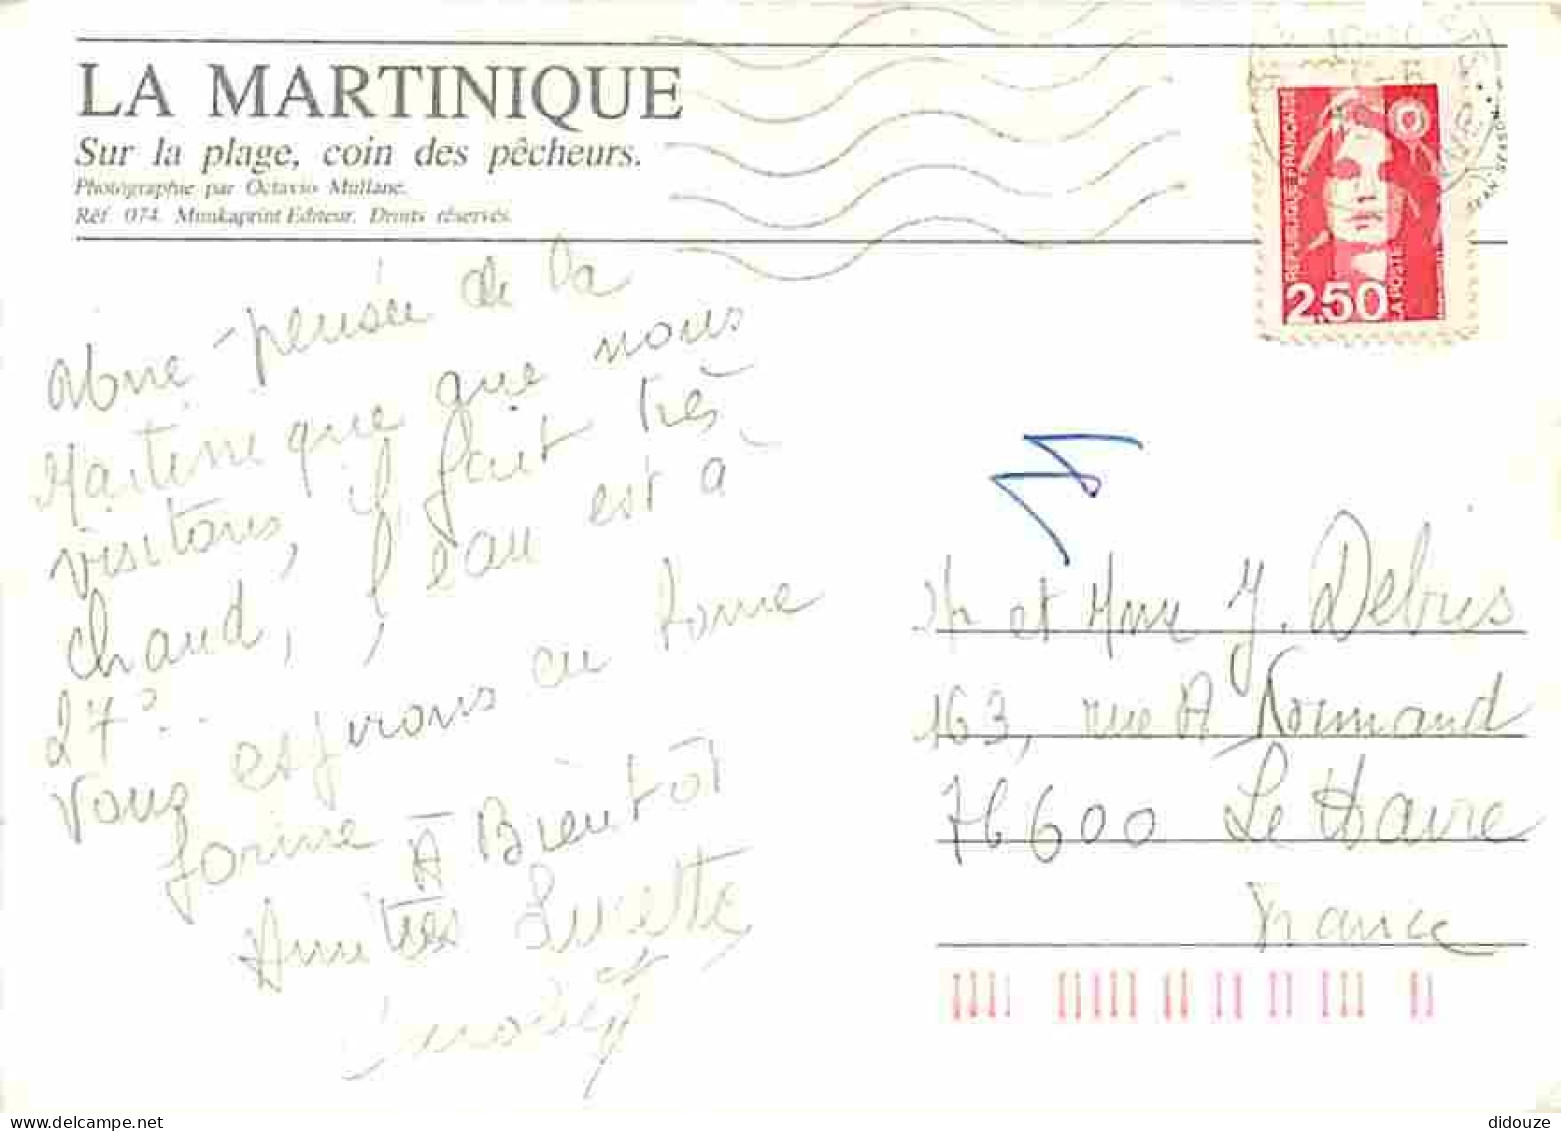 LA MARTINIQUE
Sur la plage, coin des pêcheurs.
Photographie par Octavio Mullane.
Réf. 074. Munkaprint Editeur. Droits réservés.
REPUBLIQUE FRANÇAISE
2,50
LA POSTE
Une pensée de la
Martinique que nous
visitons, il fait très
chaud, l'eau est à
27°..
Vous espérons en bonne
forme
A Bientôt
Amitiés Lucette
et
Mr et Mme J. Debris
163, rue A Normand
76600 Le Havre
France
didouze